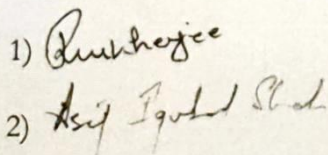 1) Mukherjee
2) Asif Iqubal Shah